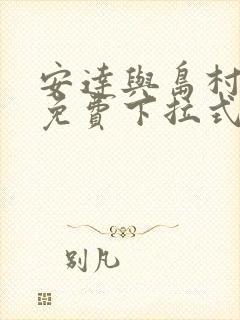 安達與島村
免費下拉式
別凡